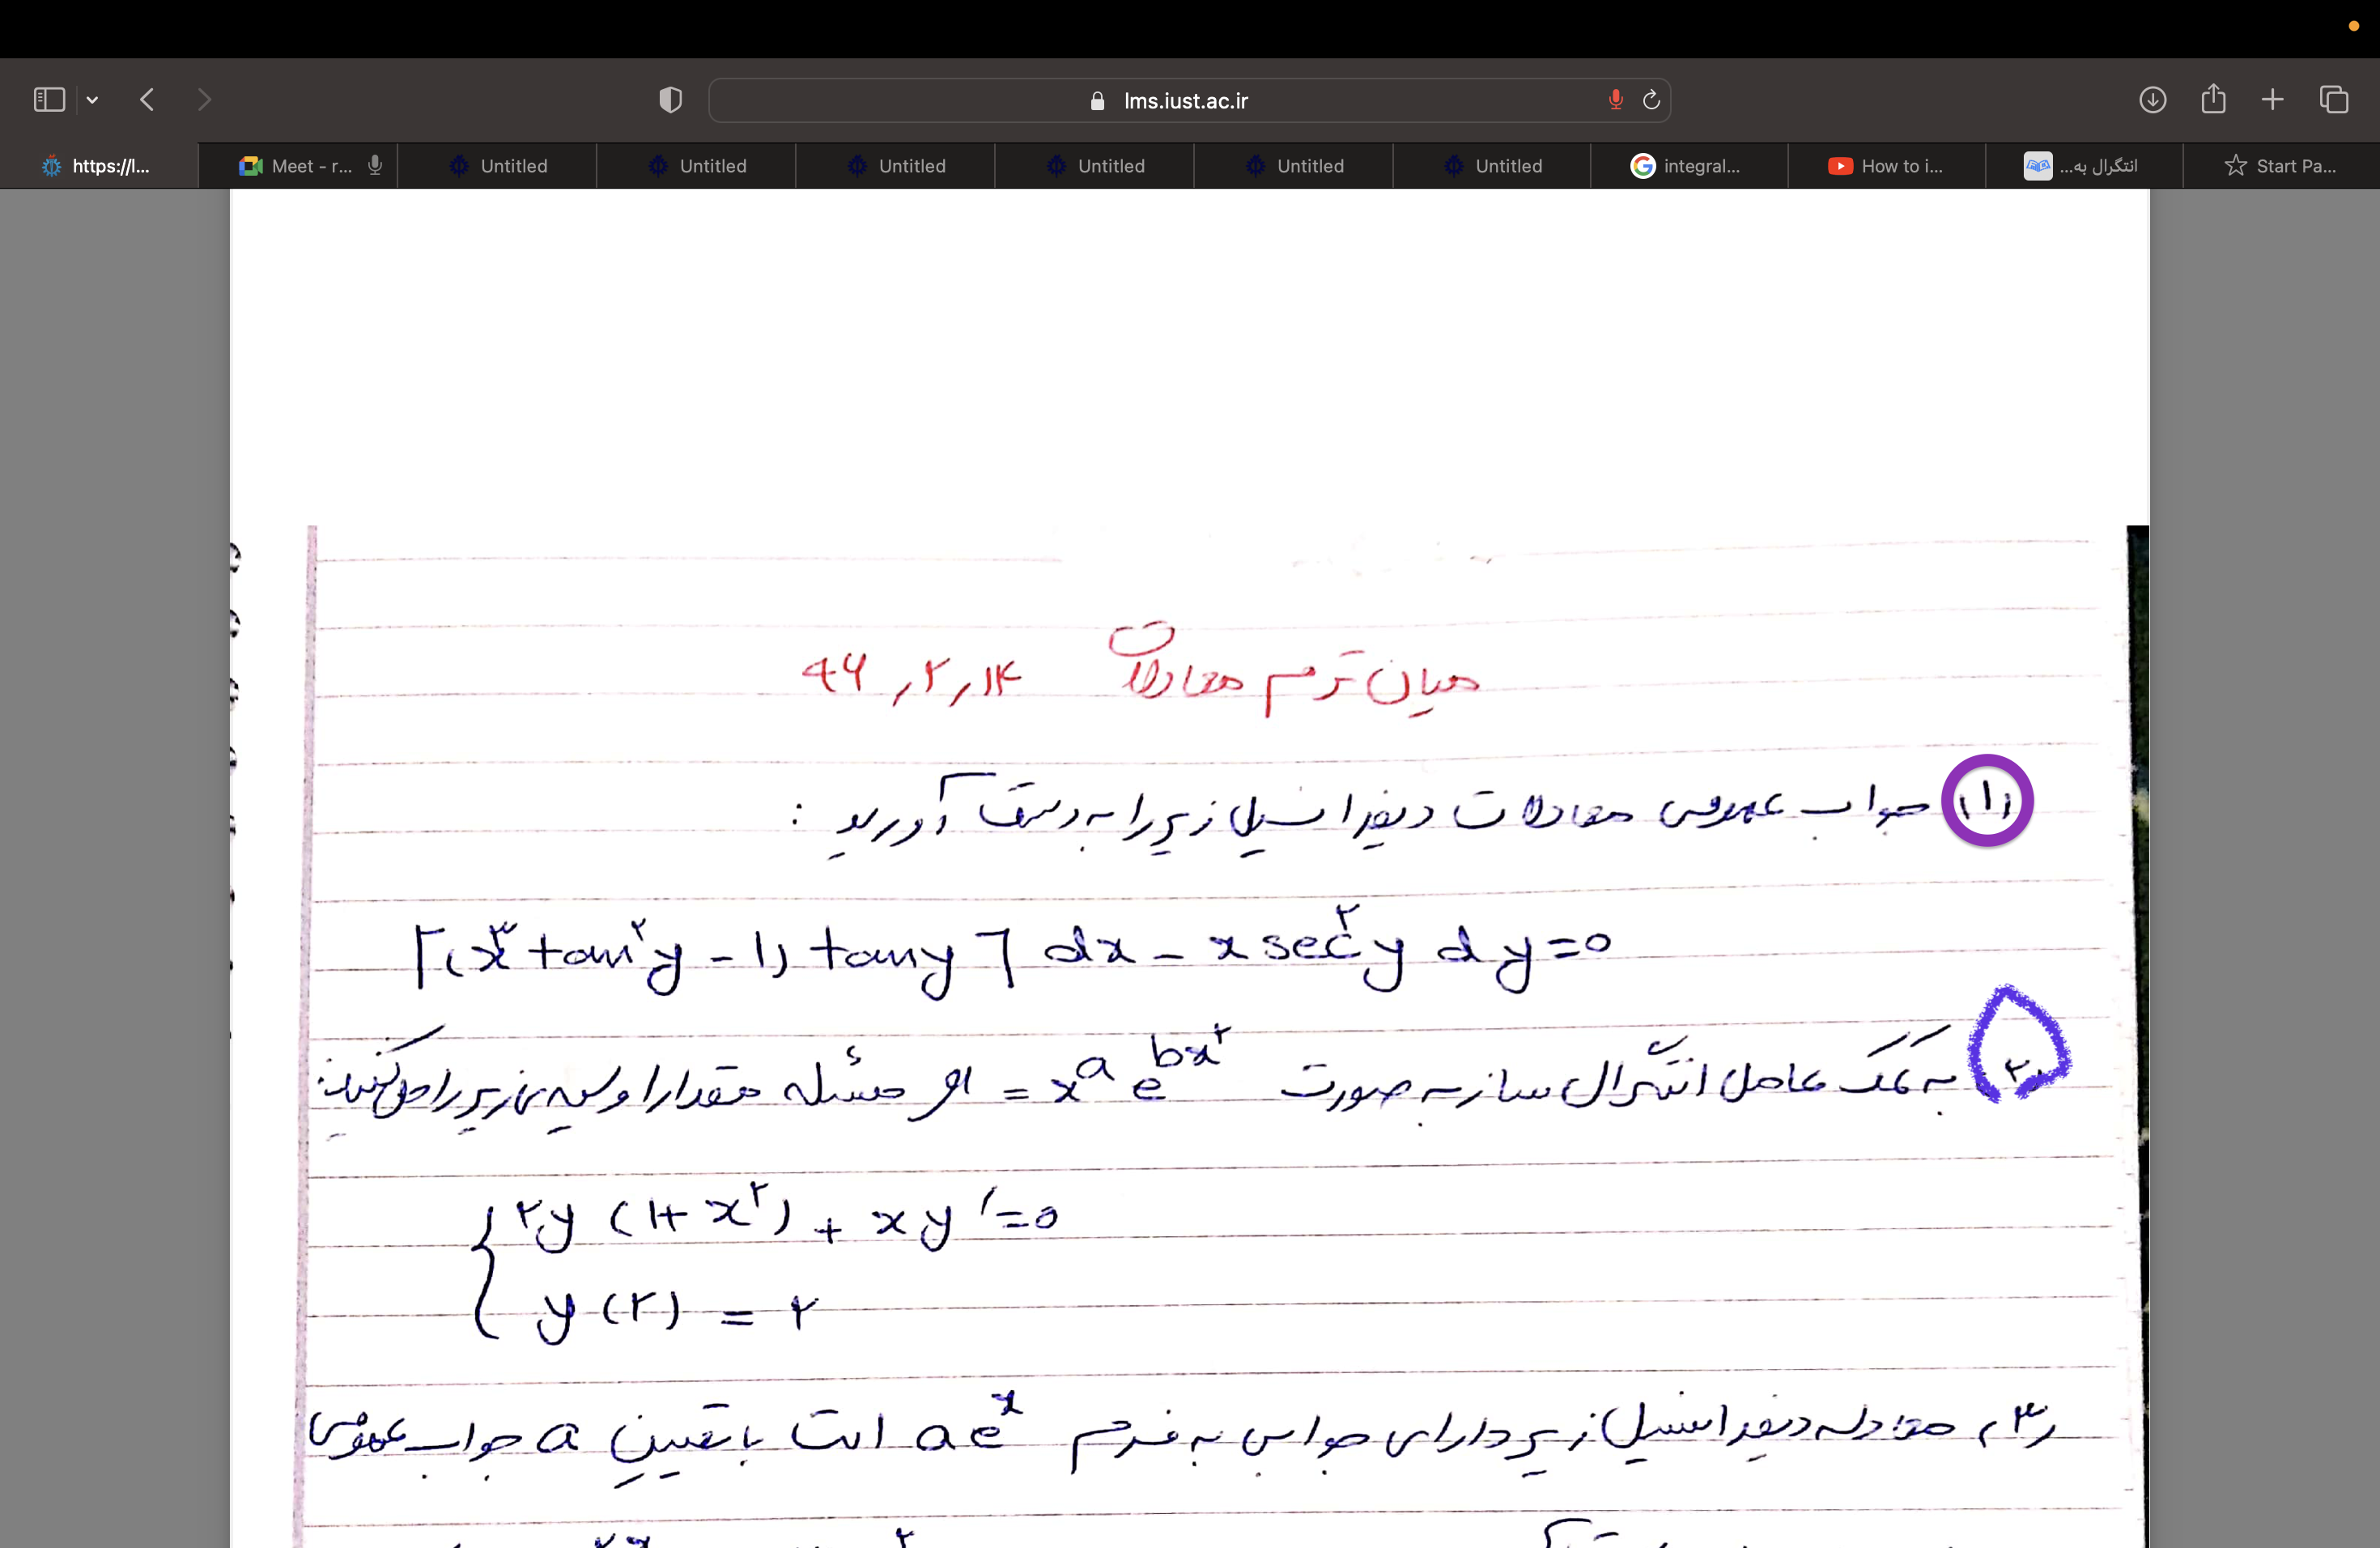 lms.iust.ac.ir
https://l...
Meet - r...
Untitled
Untitled
Untitled
Untitled
Untitled
Untitled
integral...
How to i...
انتگرال به...
Start Pa...
میان ترم معادلات ۹۹٫۲٫۱۴
(۱) جواب عمومی معادلات دیفرانسیل زیر را به دست آورید :
[(x³ tan²y - 1) tany] dx - x sec²y dy = 0
(۲) به کمک عامل انتگرال ساز به صورت = x^a e^{bx²} مسئله مقدار اولیه ی زیر را حل کنید:
۲y (1+x²) + xy' = 0
y(۲) = ۲
(۳) معادله دیفرانسیل زیر دارای جوابی به فرم ae^x است با تعیین a جواب عمومی